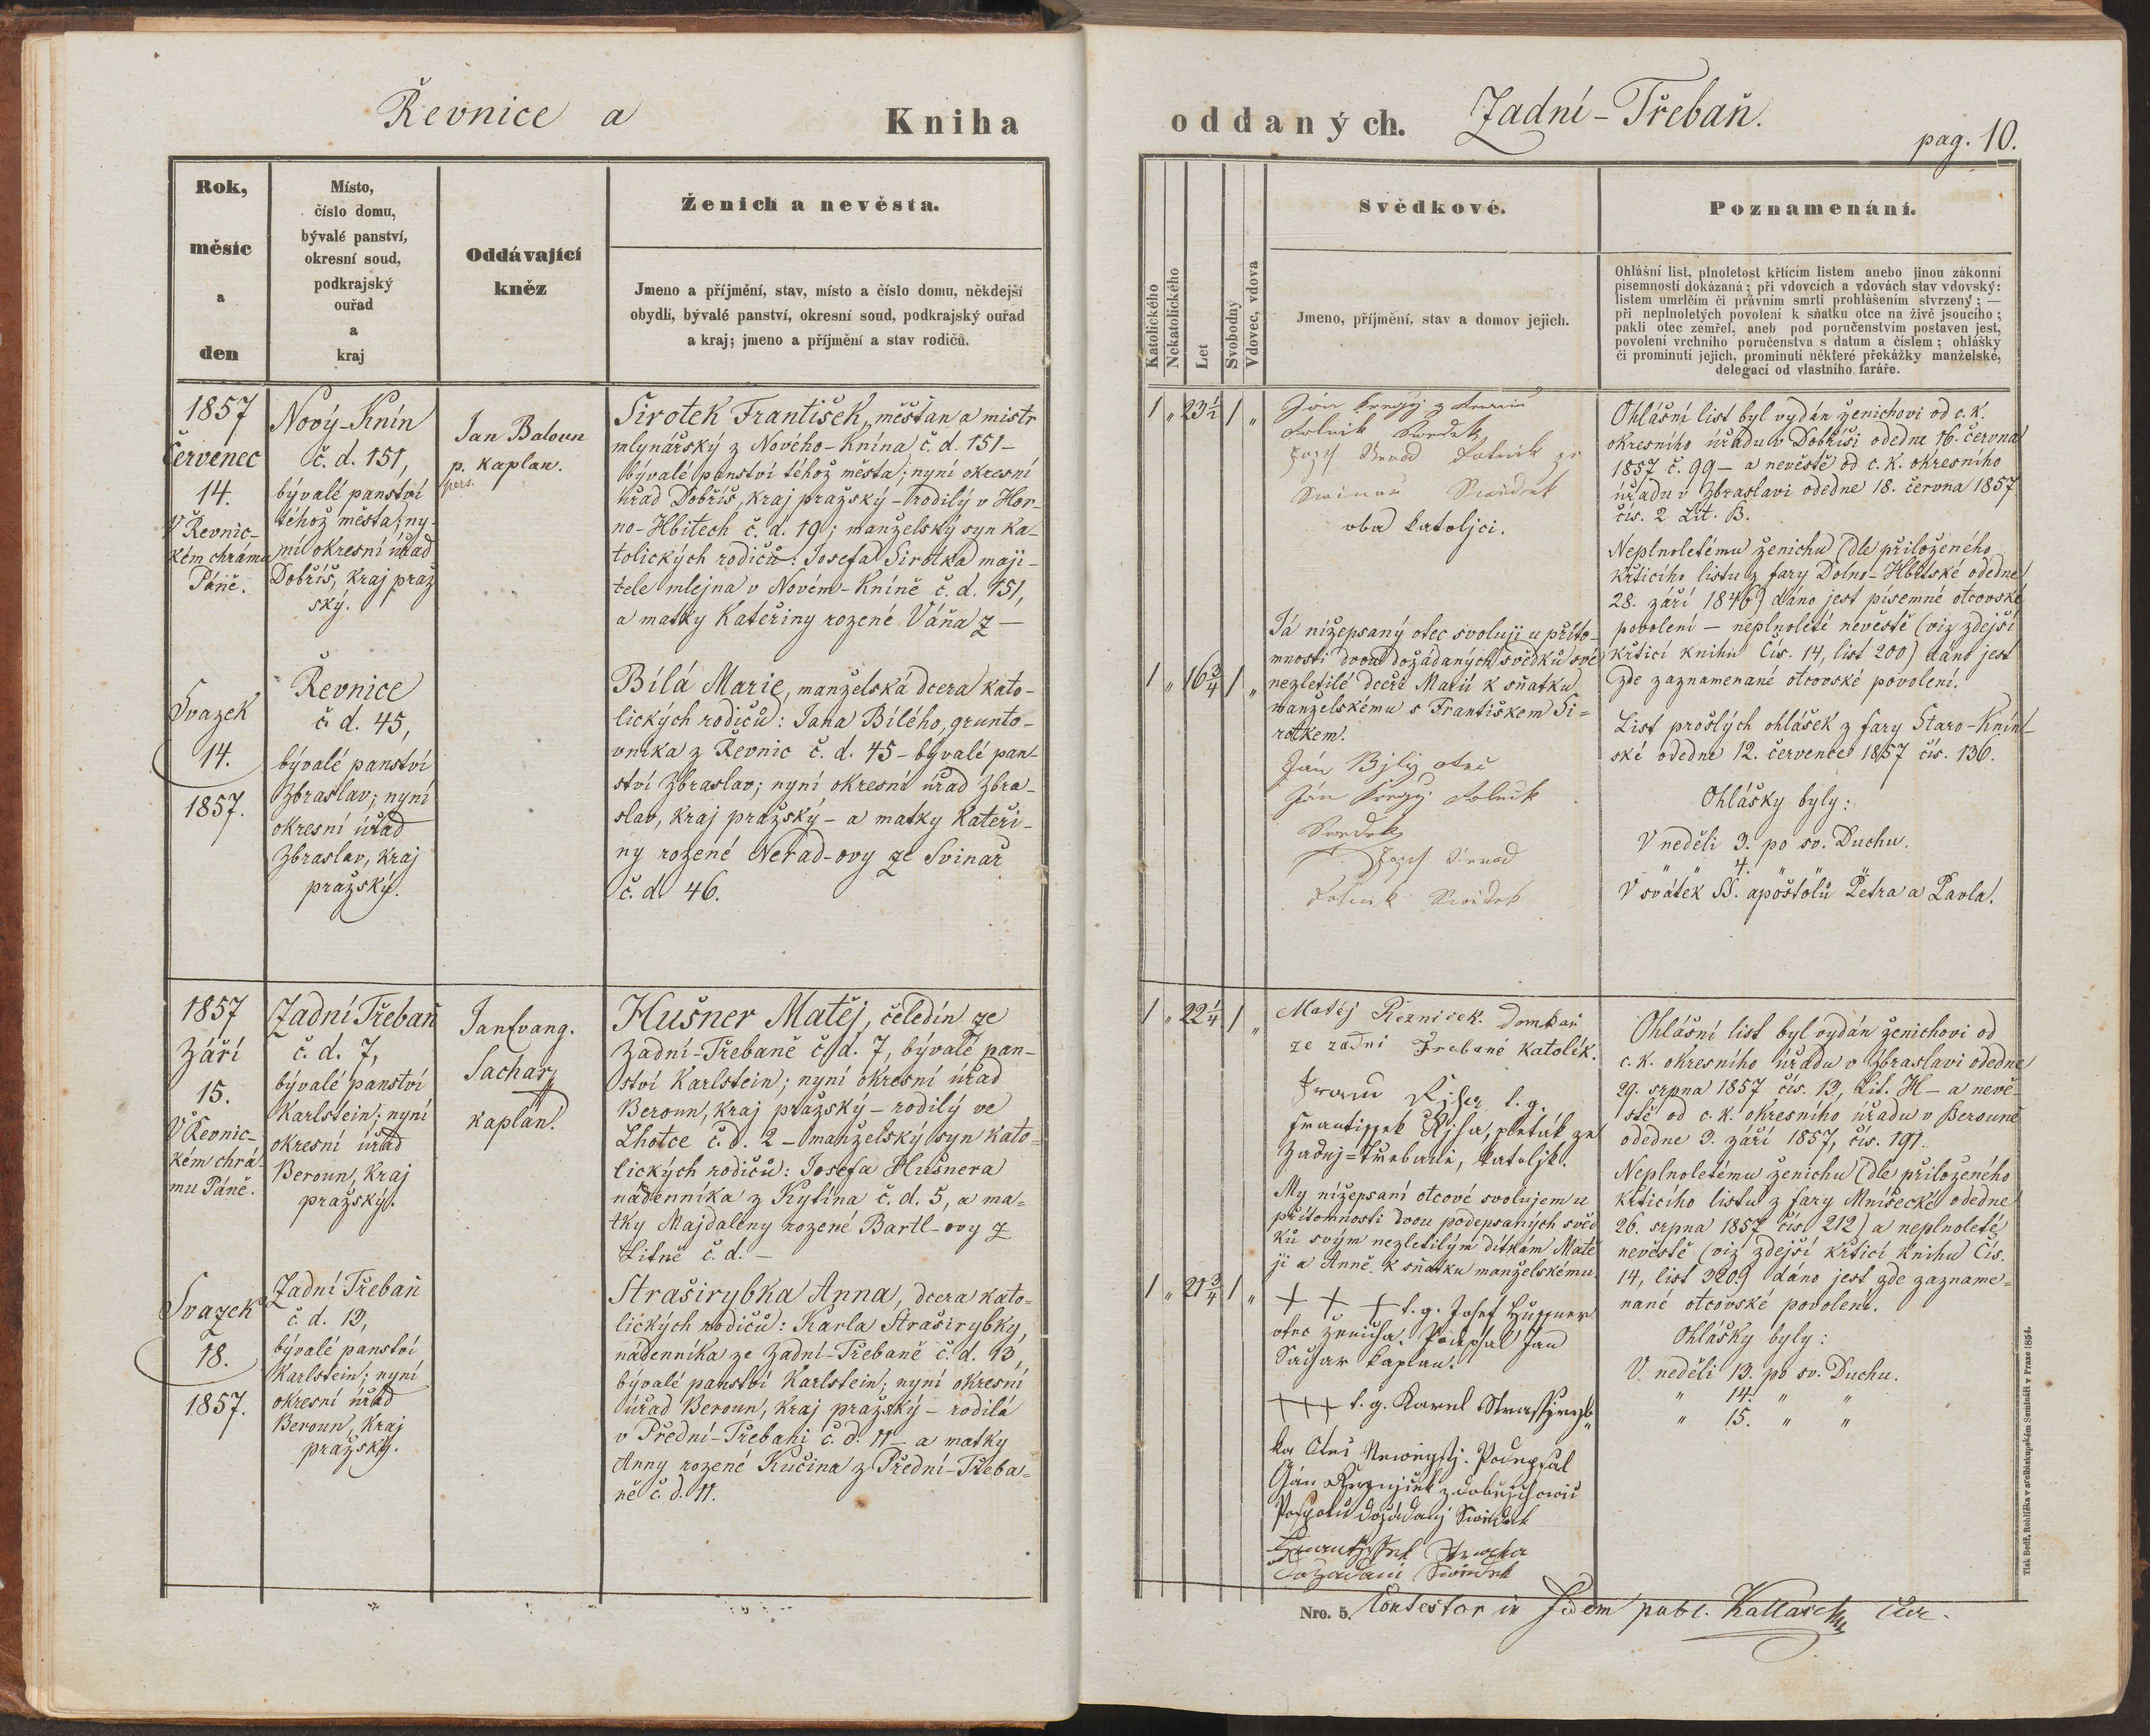 Řevnice a
Kniha
oddaných.
Zadní-Třebaň.
pag. 10.
Rok,
měsíc
a
den
Místo,
číslo domu,
bývalé panství,
okresní soud,
podkrajský
ouřad
a
kraj
Oddávající
kněz
Ženich a nevěsta.
Jmeno a příjmění, stav, místo a číslo domu, někdejší
obydlí, bývalé panství, okresní soud, podkrajský ouřad
a kraj; jmeno a příjmění a stav rodičů.
Katolického
Nekatolického
Let
Svobodný
Vdovec, vdova
Svědkové.
Jmeno, příjmění, stav a domov jejich.
Poznamenání.
Ohlášní list, plnoletost křtícím listem anebo jinou zákonní
písemností dokázaná; při vdovcích a vdovách stav vdovský:
listem umrlčím či právním smrti prohlášením stvrzený; —
při neplnoletých povolení k sňatku otce na živě jsoucího;
pakli otec zemřel, aneb pod poručenstvím postaven jest,
povolení vrchního poručenstva s datum a číslem; ohlášky
či prominutí jejich, prominutí některé překážky manželské,
delegací od vlastního faráře.
1857
Červenec
14.
V Řevnic-
kém chrámu
Páně.
Nový-Knín
č. d. 151,
bývalé panství
téhož města; ny-
ní okresní úřad
Dobříš, kraj praž
ský.
Jan Baloun
p. kaplan.
pers.
Sirotek František, měšťan a mistr
mlynářský z Nového-Knína č. d. 151 –
bývalé panství téhož města; nyní okresní
úřad Dobříš, kraj pražský – rodilý v Hor-
no-Hbitech č. d. 19; manželský syn ka-
tolických rodičů: Josefa Sirotka maji-
tele mlejna v Novém-Kníně č. d. 151,
a matky Kateřiny rozené Váňa z —
1 „ 23½ 1 „
oba katoljci.
Ohlášní list byl vydán ženichovi od c. k.
okresního úřadu v Dobříši odedne 16. června
1857 č. 99 – a nevěstě od c. k. okresního
úřadu v Zbraslavi odedne 18. června 1857
čís. 2 Lit. B.
Neplnoletému ženichu (dle přiloženého
křticího listu z fary Dolno-Hbitské odedne
28. září 1846) dáno jest písemné otcovské
povolení — neplnoleté nevěstě (viz zdejší
křticí knihu Čís. 14, list 200) dáno jest
zde zaznamenané otcovské povolení.
List prošlých ohlášek z fary Staro-Knín-
ské odedne 12. července 1857 čís. 136.
Ohlášky byly:
V neděli 3. po sv. Duchu.
„ 4. „ „
V svátek SS. apoštolů Petra a Pavla.
Svazek
14.
1857.
Řevnice
č. d. 45,
bývalé panství
Zbraslav; nyní
okresní úřad
Zbraslav, kraj
pražský.
Bílá Marie, manželská dcera kato-
lických rodičů: Jana Bílého, grunto-
vníka z Řevnic č. d. 45 – bývalé pan-
ství Zbraslav; nyní okresní úřad Zbra-
slav, kraj pražský – a matky Kateři-
ny rozené Neřad-ovy ze Svinař
č. d. 46.
1 „ 16¾ 1 „
Já nížepsaný otec svoluji u příto-
mnosti dvou dožádaných svědků své
nezletilé dceři Marii k sňatku
manželskému s Františkem Si-
rotkem.
Ján Bjlý otec
1857
Září
15.
V Řevnic-
kém chrá-
mu Páně.
Zadní Třebaň
č. d. 7,
bývalé panství
Karlstein; nyní
okresní úřad
Beroun, kraj
pražský.
Jan Evang.
Sachar
kaplan.
Hušner Matěj, čeledín ze
Zadní-Třebaně č. d. 7, bývalé pan-
ství Karlstein; nyní okresní úřad
Beroun, kraj pražský – rodilý ve
Lhotce č. d. 2 – manželský syn kato-
lických rodičů: Josefa Hušnera
nádenníka z Kytína č. d. 5, a ma-
tky Majdaleny rozené Bartl-ovy z
Litně č. d. –
1 „ 22¼ 1 „
Matěj Řeznicek. Domkař
ze zadní Trebaně Katolík.
Frantissek Řiha, pleták ze
Zadnj-Třebaně, katoljk.
My nížepsaní otcové svolujem u
přítomnosti dvou podepsaných svěd
ků svým nezletilým dítkám Matě
ji a Anně k sňatku manželskému.
+ + + t. g. Josef Hussner
otec ženicha. Podepsal Jan
Sachar kaplan.
+++ t. g. Karel Strassyryb-
ka Otec Newěsty. Podepsal
dožádaný Swědek
Swědek
Ohlášní list byl vydán ženichovi od
c. k. okresního úřadu v Zbraslavi odedne
29. srpna 1857 čís. 13, Lit. H – a nevě-
stě od c. k. okresního úřadu v Berouně
odedne 3. září 1857, čís. 191.
Neplnoletému ženichu (dle přiloženého
křticího listu z fary Mníšecké odedne
26. srpna 1857 čís. 212) a neplnoleté
nevěstě (viz zdejší křticí knihu Čís.
14, list 320) dáno jest zde zazname-
nané otcovské povolení.
Ohlášky byly:
V neděli 13. po sv. Duchu.
„ 14. „ „
„ 15. „ „
Svazek
18.
1857.
Zadní Třebaň
č. d. 13,
bývalé panství
Karlstein; nyní
okresní úřad
Beroun, kraj
pražský.
Straširybka Anna, dcera kato-
lických rodičů: Karla Straširybky,
nádenníka ze Zadní-Třebaně č. d. 13,
bývalé panství Karlstein; nyní okresní
úřad Beroun, kraj pražský – rodilá
v Přední-Třebani č. d. 11 – a matky
Anny rozené Kučina z Přední-Třeba-
ně č. d. 11.
1 „ 21¾ 1 „
Nro. 5.
Contestor in fidem publ.
Tisk Bedř. Rohlíčka v arcibiskupském Semináři v Praze 1854.